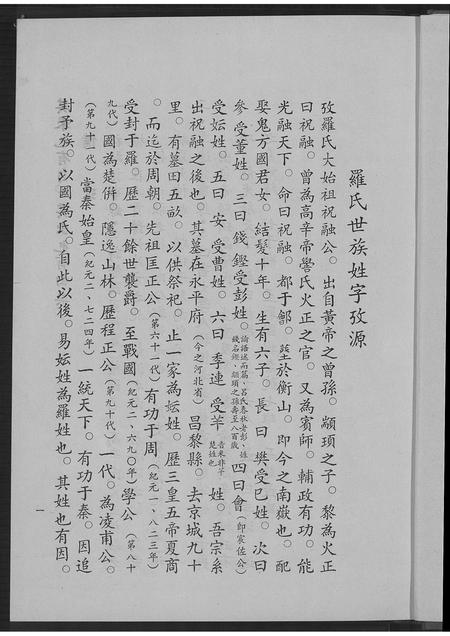 羅氏世族姓字攷源
攷羅氏大始祖祝融公。出自黃帝之曾孫。顓頊之子。黎為火正
曰祝融。曾為高辛帝嚳氏火正之官。又為賓師。輔政有功。能
光融天下。命曰祝融。都于鄶。塟於衡山。即今之南嶽也。配
娶鬼方國君女。結髮十年。生有六子。長曰樊受巳姓。次曰
參受董姓。三曰錢鏗受彭姓。四曰會(即宸佐公)
受妘姓。五曰安受曹姓。六曰季連受羋姓。吾宗系
出祝融之後也。其墓在永平府(今之河北省)昌黎縣。去京城九十
里。有墓田五畝。以供祭祀。止一家為妘姓。歷三皇五帝夏商
。而迄於周朝。先祖匡正公(第六十一代)有功于周(紀元一、八二三年)
受封于羅。歷二十餘世襲爵。至戰國(紀元二、六九〇年)學公(第八十
九代)國為楚併。隱逸山林。歷程正公(第九十代)一代。為凌甫公。
(第九十一代)當秦始皇(紀元二、七二四年)一統天下。有功于秦。因追
封予族。以國為氏。自此以後。易妘姓為羅姓也。其姓也有因。
一